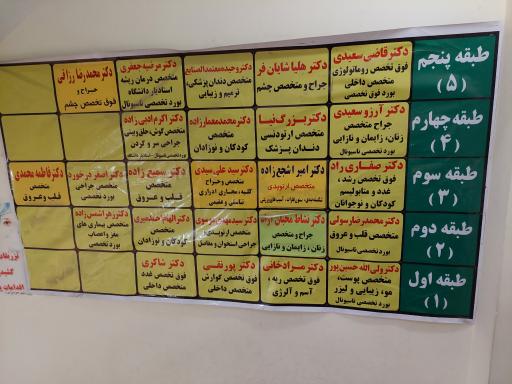 طبقه پنجم
(۵)
دکتر قاضی سعیدی
فوق تخصص روماتولوژی
متخصص داخلی
بورد فوق تخصصی
دکتر هلیا شایان فر
جراح و متخصص چشم
دکتر وحیده معتمدالصنایع
متخصص دندان پزشکی،
ترمیم و زیبایی
دکتر مرضیه جعفری
متخصص درمان ریشه
استادیار دانشگاه
بورد تخصصی ناسیونال
دکتر محمدرضا رزاقی
جراح و
فوق تخصص چشم
طبقه چهارم
(۴)
دکتر آرزو سعیدی
جراح متخصص
زنان، زایمان و نازایی
بورد تخصصی ناسیونال
دکتر بزرگ نیا
متخصص ارتودنسی
دندان پزشک
دکتر محمد معمارزاده
متخصص
کودکان و نوزادان
دکتر اکرم ادبی زاده
متخصص گوش، حلق و بینی
جراحی سر و گردن
طبقه سوم
(۳)
دکتر صفاری راد
فوق تخصص رشد،
غدد و متابولیسم
کودکان و نوجوانان
دکتر امیر اشجع زاده
متخصص ارتوپدی
دکتر سید علی سیدی
متخصص و جراح
کلیه، مجاری ادراری
تناسلی و عقیمی
دکتر سمیع زاده
متخصص
قلب و عروق
دکتر اصغر درخورد
متخصص جراحی
بورد تخصصی
دکتر فاطمه محمدی
متخصص
قلب و عروق
طبقه دوم
(۲)
دکتر محمدرضا رسولی
متخصص قلب و عروق
بورد تخصصی ناسیونال
دکتر نشاط محبان آزاد
جراح و متخصص
زنان، زایمان و نازایی
متخصص ارتوپدی
جراحی استخوان و مفاصل
کودکان و نوزادان
دکتر زهرا شمس زاده
متخصص بیماری های
مغز و اعصاب
بورد تخصصی
طبقه اول
(۱)
دکتر ولی الله حسین پور
متخصص پوست،
مو، زیبایی و لیزر
بورد تخصصی ناسیونال
دکتر مرادخانی
فوق تخصص ریه،
آسم و آلرژی
دکتر پورتقی
فوق تخصص گوارش
متخصص داخلی
دکتر شاکری
فوق تخصص غدد
متخصص داخلی